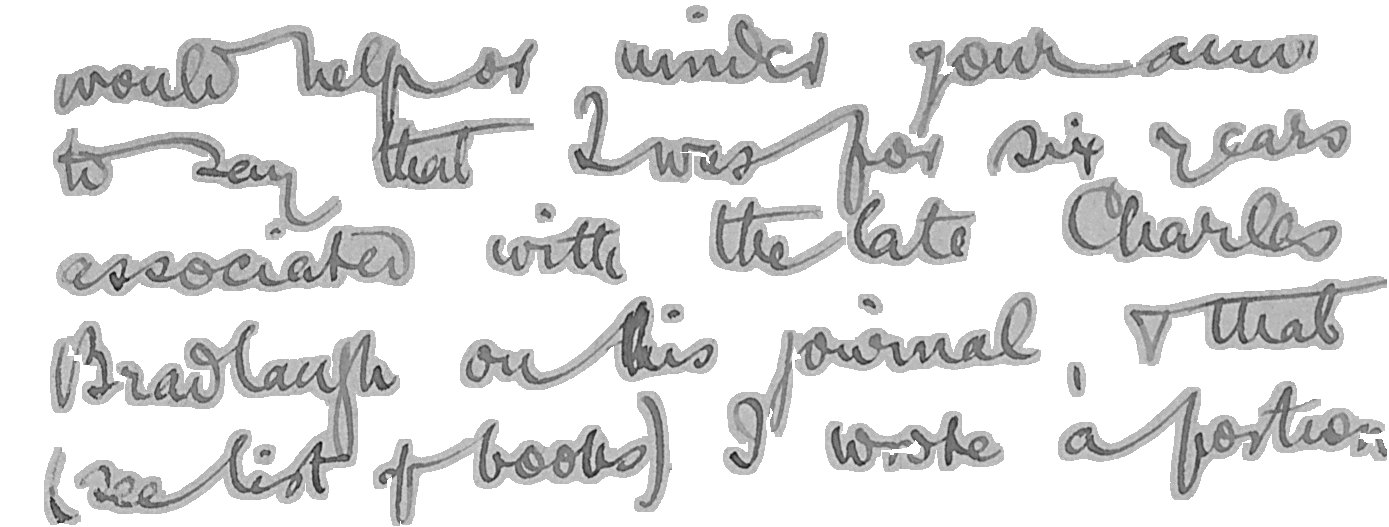 would help or under your
to say that I was for six years
associated with the late Charles
Bradlaugh on his journal, & that
(see list of books) I wrote a portion